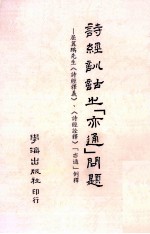 詩經訓詁之「亦通」問題
—屈萬里先生《詩經釋義》、《詩經詮釋》「亦通」例釋
學海出版社印行